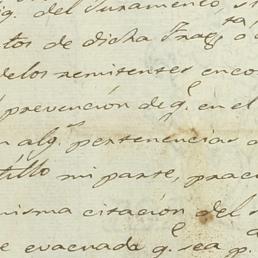 q. del Juramento, s
tos de dicha Frag.ta ó
delos remitentes en co
prevencion de q.e en el
n alg.s pertenencias d
tillo mi parte, prac
misma citacion del
e evacuada q.e sea p.